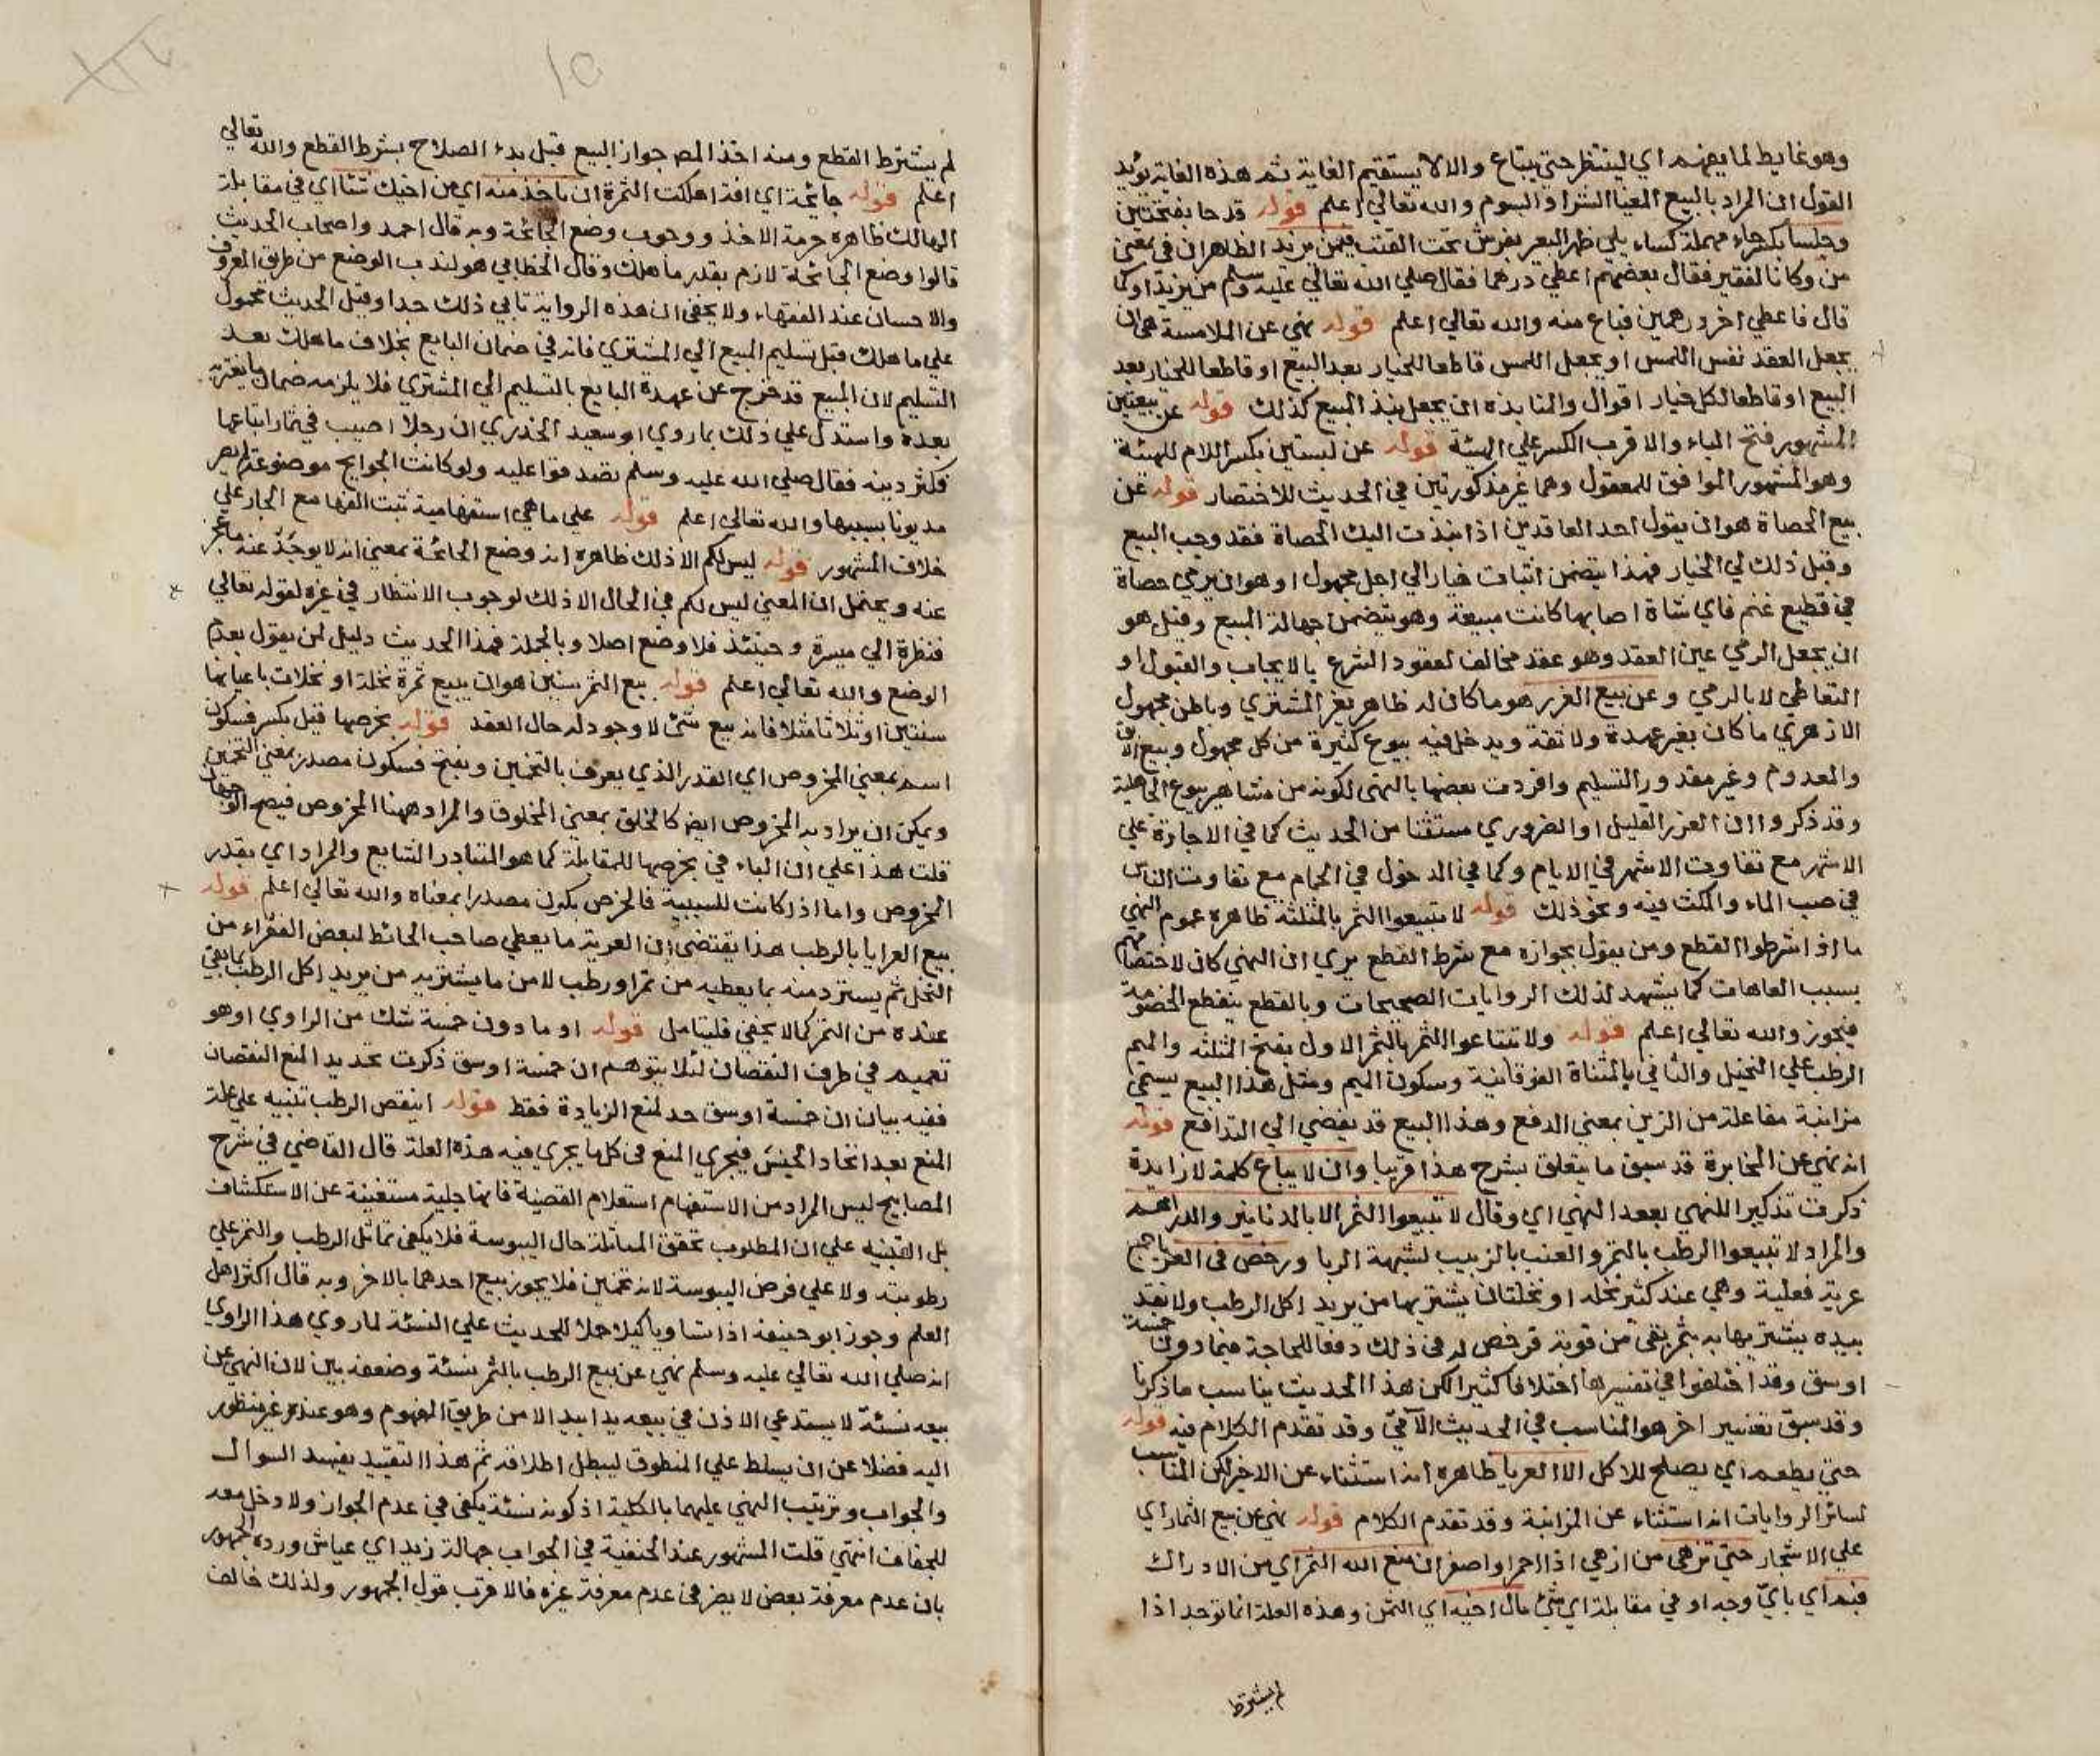 وهو غايط لما يفهم اي لينتظر حتي يبتاع والا لا يستقيم الغاية ثم هذه الغاية يؤيد
القول ان المراد بالبيع المغيا الشراء والسوم والله تعالي اعلم قوله قدحا بفتحتين
وحلسا بكسر حاء مهملة كساء يلي ظهر البعير يفرش تحت القتب فيمن يزيد الظاهر ان في بمعني
من وكانا لفقير فقال بعضهم اعطي درهما فقال صلي الله تعالي عليه وسلم من يزيد او كما
قال فاعطي اخر درهمين فباع منه والله تعالي اعلم قوله نهي عن الملامسة هي ان
يجعل العقد نفس اللمس او يجعل اللمس قاطعا للخيار بعد البيع او قاطعا للخيار بعد
البيع او قاطعا لكل خيار اقوال والمنابذه ان يجعل بنذ المبيع كذلك قوله عن بيعتين
المشهور فتح الباء والاقرب الكسر علي الهيئة قوله عن لبستين بكسر اللام للهيئة
وهو المشهور الموافق للمعقول وهما غير مذكورتين في الحديث للاختصار قوله عن
بيع الحصاة هو ان يقول احد العاقدين اذا نبذت اليك الحصاة فقد وجب البيع
وقبل ذلك لي الخيار فهذا يتضمن اثبات خيار الي اجل مجهول او هو ان يرمي حصاة
في قطيع غنم فاي شاة اصابها كانت مبيعة وهو يتضمن جهالة المبيع وقيل هو
ان يجعل الرمي عين العقد وهو عقد مخالف لعقود الشرع بالايجاب والقبول او
التعاطي لا بالرمي وعن بيع الغرر هو ما كان له ظاهر يغر المشتري وباطن مجهول
الازهري ما كان بغير عهدة ولا ثقة ويدخل فيه بيوع كثيرة من كل مجهول وبيع الابق
والمعدوم وغير مقدور التسليم وافردت بعضها بالنهي لكونه من مشاهير بيوع الجاهلية
وقد ذكروا ان الغرر القليل او الضروري مستثنا من الحديث كما في الاجارة علي
الاشهر مع تفاوت الاشهر في الايام وكما في الدخول في الحمام مع تفاوت الناس
في صب الماء والمكث فيه ونحو ذلك قوله لا تبيعوا الثمر بالمثلثه ظاهره عموم النهي
ما اذا شرطوا القطع ومن يقول بجوازه مع شرط القطع يري ان النهي كان لاختصامهم
بسبب العاهات كما يشهد لذلك الروايات الصحيحات وبالقطع ينقطع الخصومة
فيجوز والله تعالي اعلم قوله ولا تبتاعوا الثمر بالتمر الاول بفتح المثلثه والميم
الرطب علي النخيل والثاني بالمثناة الفوقانية وسكون الميم ومثل هذا البيع يسمي
مزابنة مفاعلة من الزبن بمعني الدفع وهذا البيع قد يفضي الي التدافع قوله
انه نهي عن المخابرة قد سبق ما يتعلق بشرح هذا قريبا وان لا يباع كلمة لا زايدة
ذكرت تذكيرا للنهي بعد النهي اي وقال لا تبيعوا الثمر الا بالدنانير والدراهم
والمراد لا تبيعوا الرطب بالتمر والعنب بالزبيب لشبهة الربا ورخص في العرايا جمع
عرية فعلية وهي عند كثير نخله او نخلتان يشتريها من يريد اكل الرطب ولا نقد
بيده يشتريها به بتمر بقي من قوته فرخص له في ذلك دفعا للحاجة فيما دون خمسة
اوسق وقد اختلفوا في تفسيرها اختلافا كثيرا لكن هذا الحديث يناسب ما ذكرنا
وقد سبق تفسير اخر هو المناسب في الحديث الآتي وقد تقدم الكلام فيه قوله
حتي يطعم اي يصلح للاكل الا العرايا ظاهره انه استثناء عن الاخير لكن المناسب
لسائر الروايات انه استثناء عن المزابنة وقد تقدم الكلام قوله نهي عن بيع الثمار اي
علي الاشجار حتي تزهي من ازهي اذا احمر او اصفر ان منع الله الثمر اي من الادراك
فبم اي باي وجه او في مقابلة اي شئ مال اخيه اي الثمن وهذه العلة انما توجد اذا
لم يشترط
لم يشترط القطع ومنه اخذ المص جواز البيع قبل بدء الصلاح بشرط القطع والله تعالي
اعلم قوله جائحة اي افة اهلكت الثمرة ان ياخذ منه اي من اخيك شئا اي في مقابلة
الهالك ظاهره حرمة الاخذ ووجوب وضع الجائحة وبه قال احمد واصحاب الحديث
قالوا وضع الجائحة لازم بقدر ما هلك وقال الخطابي هو لندب الوضع من طريق المعروف
والاحسان عند الفقهاء ولا يخفي ان هذه الرواية تابي ذلك جدا وقيل الحديث محمول
علي ما هلك قبل تسليم المبيع الي المشتري فانه في ضمان البايع بخلاف ما هلك بعد
التسليم لان المبيع قد خرج عن عهدة البايع بالتسليم الي المشتري فلا يلزمه ضمان ما يعتريه
بعده واستدل علي ذلك بما روي ابو سعيد الخدري ان رجلا اصيب في ثمار ابتاعها
فكثر دينه فقال صلي الله عليه وسلم تصدقوا عليه ولو كانت الجوايح موضوعة لم يصر
مديونا بسببها والله تعالي اعلم قوله علي ما هي استفهامية ثبت الفها مع الجار علي
خلاف المشهور قوله ليس لكم الا ذلك ظاهره انه وضع الجائحة بمعني انه لا يوخذ عنه ما عجز
عنه ويحتمل ان المعني ليس لكم في الحال الا ذلك لوجوب الانتظار في غيره لقوله تعالي
فنظرة الي ميسرة وحينئذ فلا وضع اصلا وبالجملة فهذا الحديث دليل لمن يقول بعدم
الوضع والله تعالي اعلم قوله بيع الثمر سنين هو ان يبيع ثمرة نخلة او نخلات باعيانها
سنتين او ثلاثا مثلا فانه بيع شئ لا وجود له حال العقد قوله بخرصها قيل بكسر فسكون
اسم بمعني المخروص اي القدر الذي يعرف بالتخمين وبفتح فسكون مصدر بمعني التخمين
ويمكن ان يراد به المخروص ايضا كالخلق بمعني المخلوق والمراد ههنا المخروص فيصح الوجهان
قلت هذا علي ان الباء في بخرصها للمقابلة كما هو المتبادر الشايع والمراد اي بقدر
المخروص واما اذا كانت للسببية فالخرص يكون مصدرا بمعناه والله تعالي اعلم قوله
بيع العرايا بالرطب هذا يقتضي ان العرية ما يعطي صاحب الحائط لبعض الفقراء من
النخل ثم يسترد منه بما يعطيه من تمر او رطب لا من ما يشتريه من يريد اكل الرطب بما بقي
عنده من التمر كما لا يخفي فليتامل قوله او ما دون خمسة شك من الراوي او هو
تعميم في طرف النقصان لئلا يتوهم ان خمسة اوسق ذكرت تحديدا لمنع النقصان
ففيه بيان ان خمسة اوسق حد لمنع الزيادة فقط قوله اينقص الرطب تنبيه علي علة
المنع بعد اتحاد الجنس فيجري المنع في كل ما يجري فيه هذه العلة قال القاضي في شرح
المصابيح ليس المراد من الاستفهام استعلام القضية فانها جلية مستغنية عن الاستكشاف
بل التنبيه علي ان المطلوب تحقق المماثلة حال اليبوسة فلا يكفي تماثل الرطب والتمر علي
رطوبته ولا علي فرض اليبوسة لانه تخمين فلا يجوز بيع احدهما بالاخر وبه قال اكثر اهل
العلم وجوز ابو حنيفة اذا تساويا كيلا حملا للحديث علي النسئة لما روي هذا الراوي
انه صلي الله تعالي عليه وسلم نهي عن بيع الرطب بالتمر نسئة وضعفه بين لان النهي عن
بيعه نسئة لا يستدعي الاذن في بيعه يدا بيد الا من طريق المفهوم وهو عنده غير منظور
اليه فضلا عن ان يسلط علي المنطوق ليبطل اطلاقه ثم هذا التقييد يفسد السوال
والجواب وترتيب النهي عليهما بالكلية اذ كونه نسئة يكفي في عدم الجواز ولا دخل معه
للجفاف انتهي قلت المشهور عند الحنفية في الجواب جهالة زيد اي عياش ورده الجمهور
بان عدم معرفة بعض لا يضر في عدم معرفة غيره فالاقرب قول الجمهور ولذلك خالف